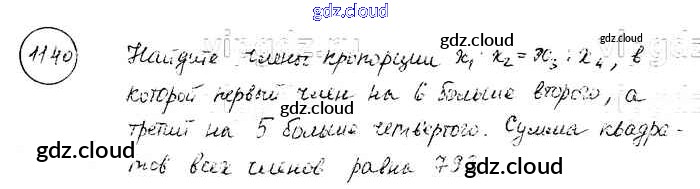 gdz.cloud
1140 Найдите члены пропорции x₁ : x₂ = x₃ : x₄, в
которой первый член на 6 больше второго, а
третий на 5 больше четвертого. Сумма квадра-
тов всех членов равна 793
gdz.cloud
gdz.cloud
gdz.cloud
gdz.cloud
gdz.cloud
gdz.cloud